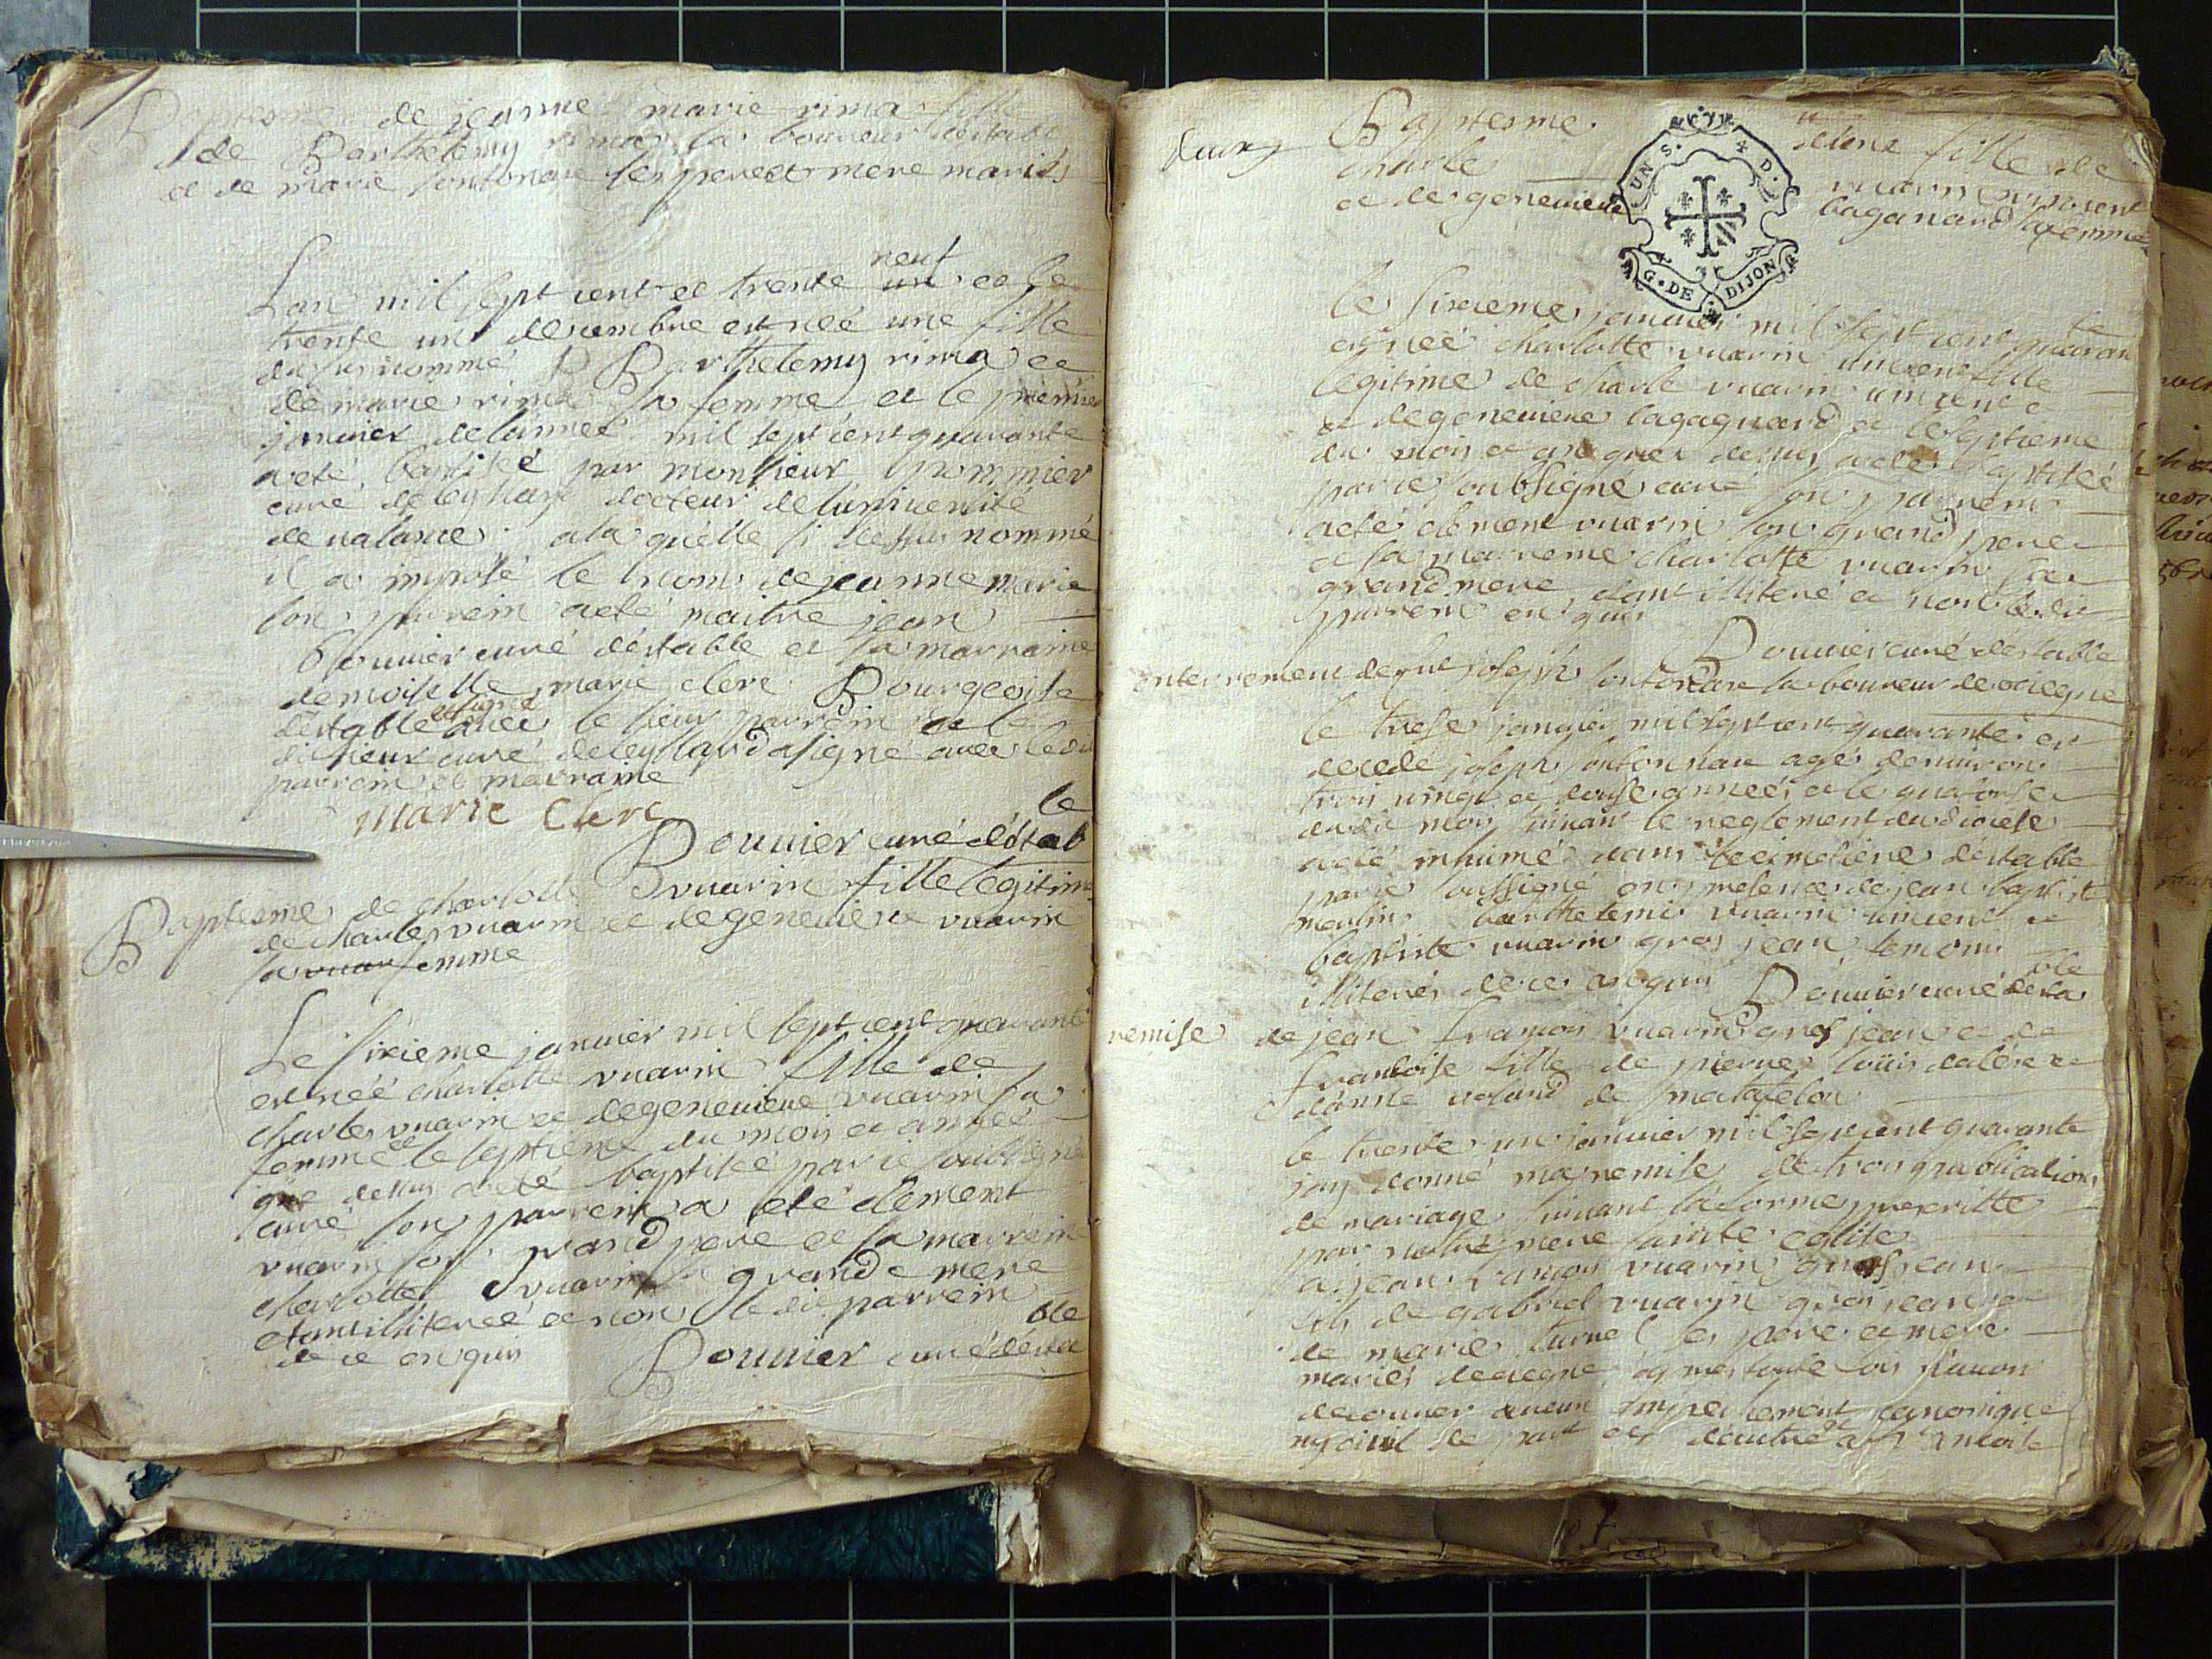 Baptesme de jeanne marie rima fille
de Barthelemy rima la boureur destabl
et de marie sontonnax ses pere et mere mariés
Lan mil sept cent et trente un neuf et le
trente un decembre est neé une fille
du susnommé Barthelemy rima et
de marie rima sa femme et le premier
janvier de lanneé mil sept cent quarante
a eté baptiseé par monsieur pommier
curé de leyssard docteur de luniversité
de valance a la quelle si dessus nommé
il a imposé le nom de jeanne marie
son parrein a eté maitre jean
Bouvier curé déstable et sa marraine
demoiselle marie clerc Bourgeoise
déstable et signé avec le sieur parrein et le
dit sieur curé de leyssard a signé avec ledit
parrein et marraine
marie Clerc
Bouvier curé déstab le
Baptesme de charlotte vuarin fille legitime
de charles vuarin et de genevieve vuarin
sa vuar femme
Le sixieme janvier mil sept cent quarante
est neé charlotte vuarin fille de
charles vuarin et de genevieve vuarin sa
femme et le septieme du mois et anneé
que dessus a eté baptiseé par ie soubsigné
curé son parrein a eté clement
vuarin son grand pere et sa marreine
charlotte vuarin sa grande mere
etant illitereé et non le dit parrein
de ce enquis Bouvier curé désta ble
Baptesme d'une fille de
charle vuarin vincent
et de genevieve bagagnard sa femme
UN S. D. G. DE DIJON
le sixieme janvier mil sept cent quaran te
est neé charlotte vuarin vincent fille
legitime de charle vuarin vincent
et de genevieve bagagnard et le septieme
du mois et an que dessus a eté baptiseé
par ie soubsigné curé son parrein
a eté clement vuarin son grand pere
et sa marreine charlotte vuarin sa
grand mere etant illiteré et non le dit
parrein enquis
Bouvier curé déstable
enterrement de joseph sontonnax la boureur de
le trese janvier mil sept cent quarante est
decedé joseph sontonnax agé denviron
trois vingt et douse anneés et le quatorse
dudit mois suivant le reglement du diocese
a eté inhumé dans le cimetiere déstable
par ie soussigné en presence de jean baptiste
merlin barthelemi vuarin vincent et
baptiste vuarin gros jean temoins
illiterés de ce enquis Bouvier curé désta ble
remise de jean vuarin gros jean et de
francoise fille de pierre loüis et
danne voland de matafelon
le trente un janvier mil sept cent quarante
jay donné ma remise de trois publications
de mariage suivant la forme prescritte
par notre mere sainte eglise
a jean vuarin gros jean
fils de gabriel vuarin gros jean et
de marie ses pere et mere
mariés apres toute fois n'avoir
decouver aucun empechement canonique
ny civil de part et dautre